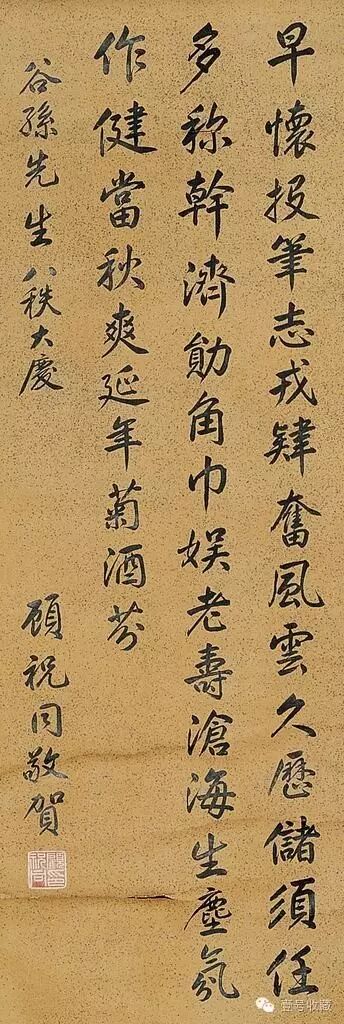 早懷投筆志戎肄奮風雲久歷儲須任
多称幹濟勛角巾娱老壽滄海生塵氛
作健當秋爽延年菊酒芬
谷孫先生八秩大慶
顧祝同敬賀
壹号收藏